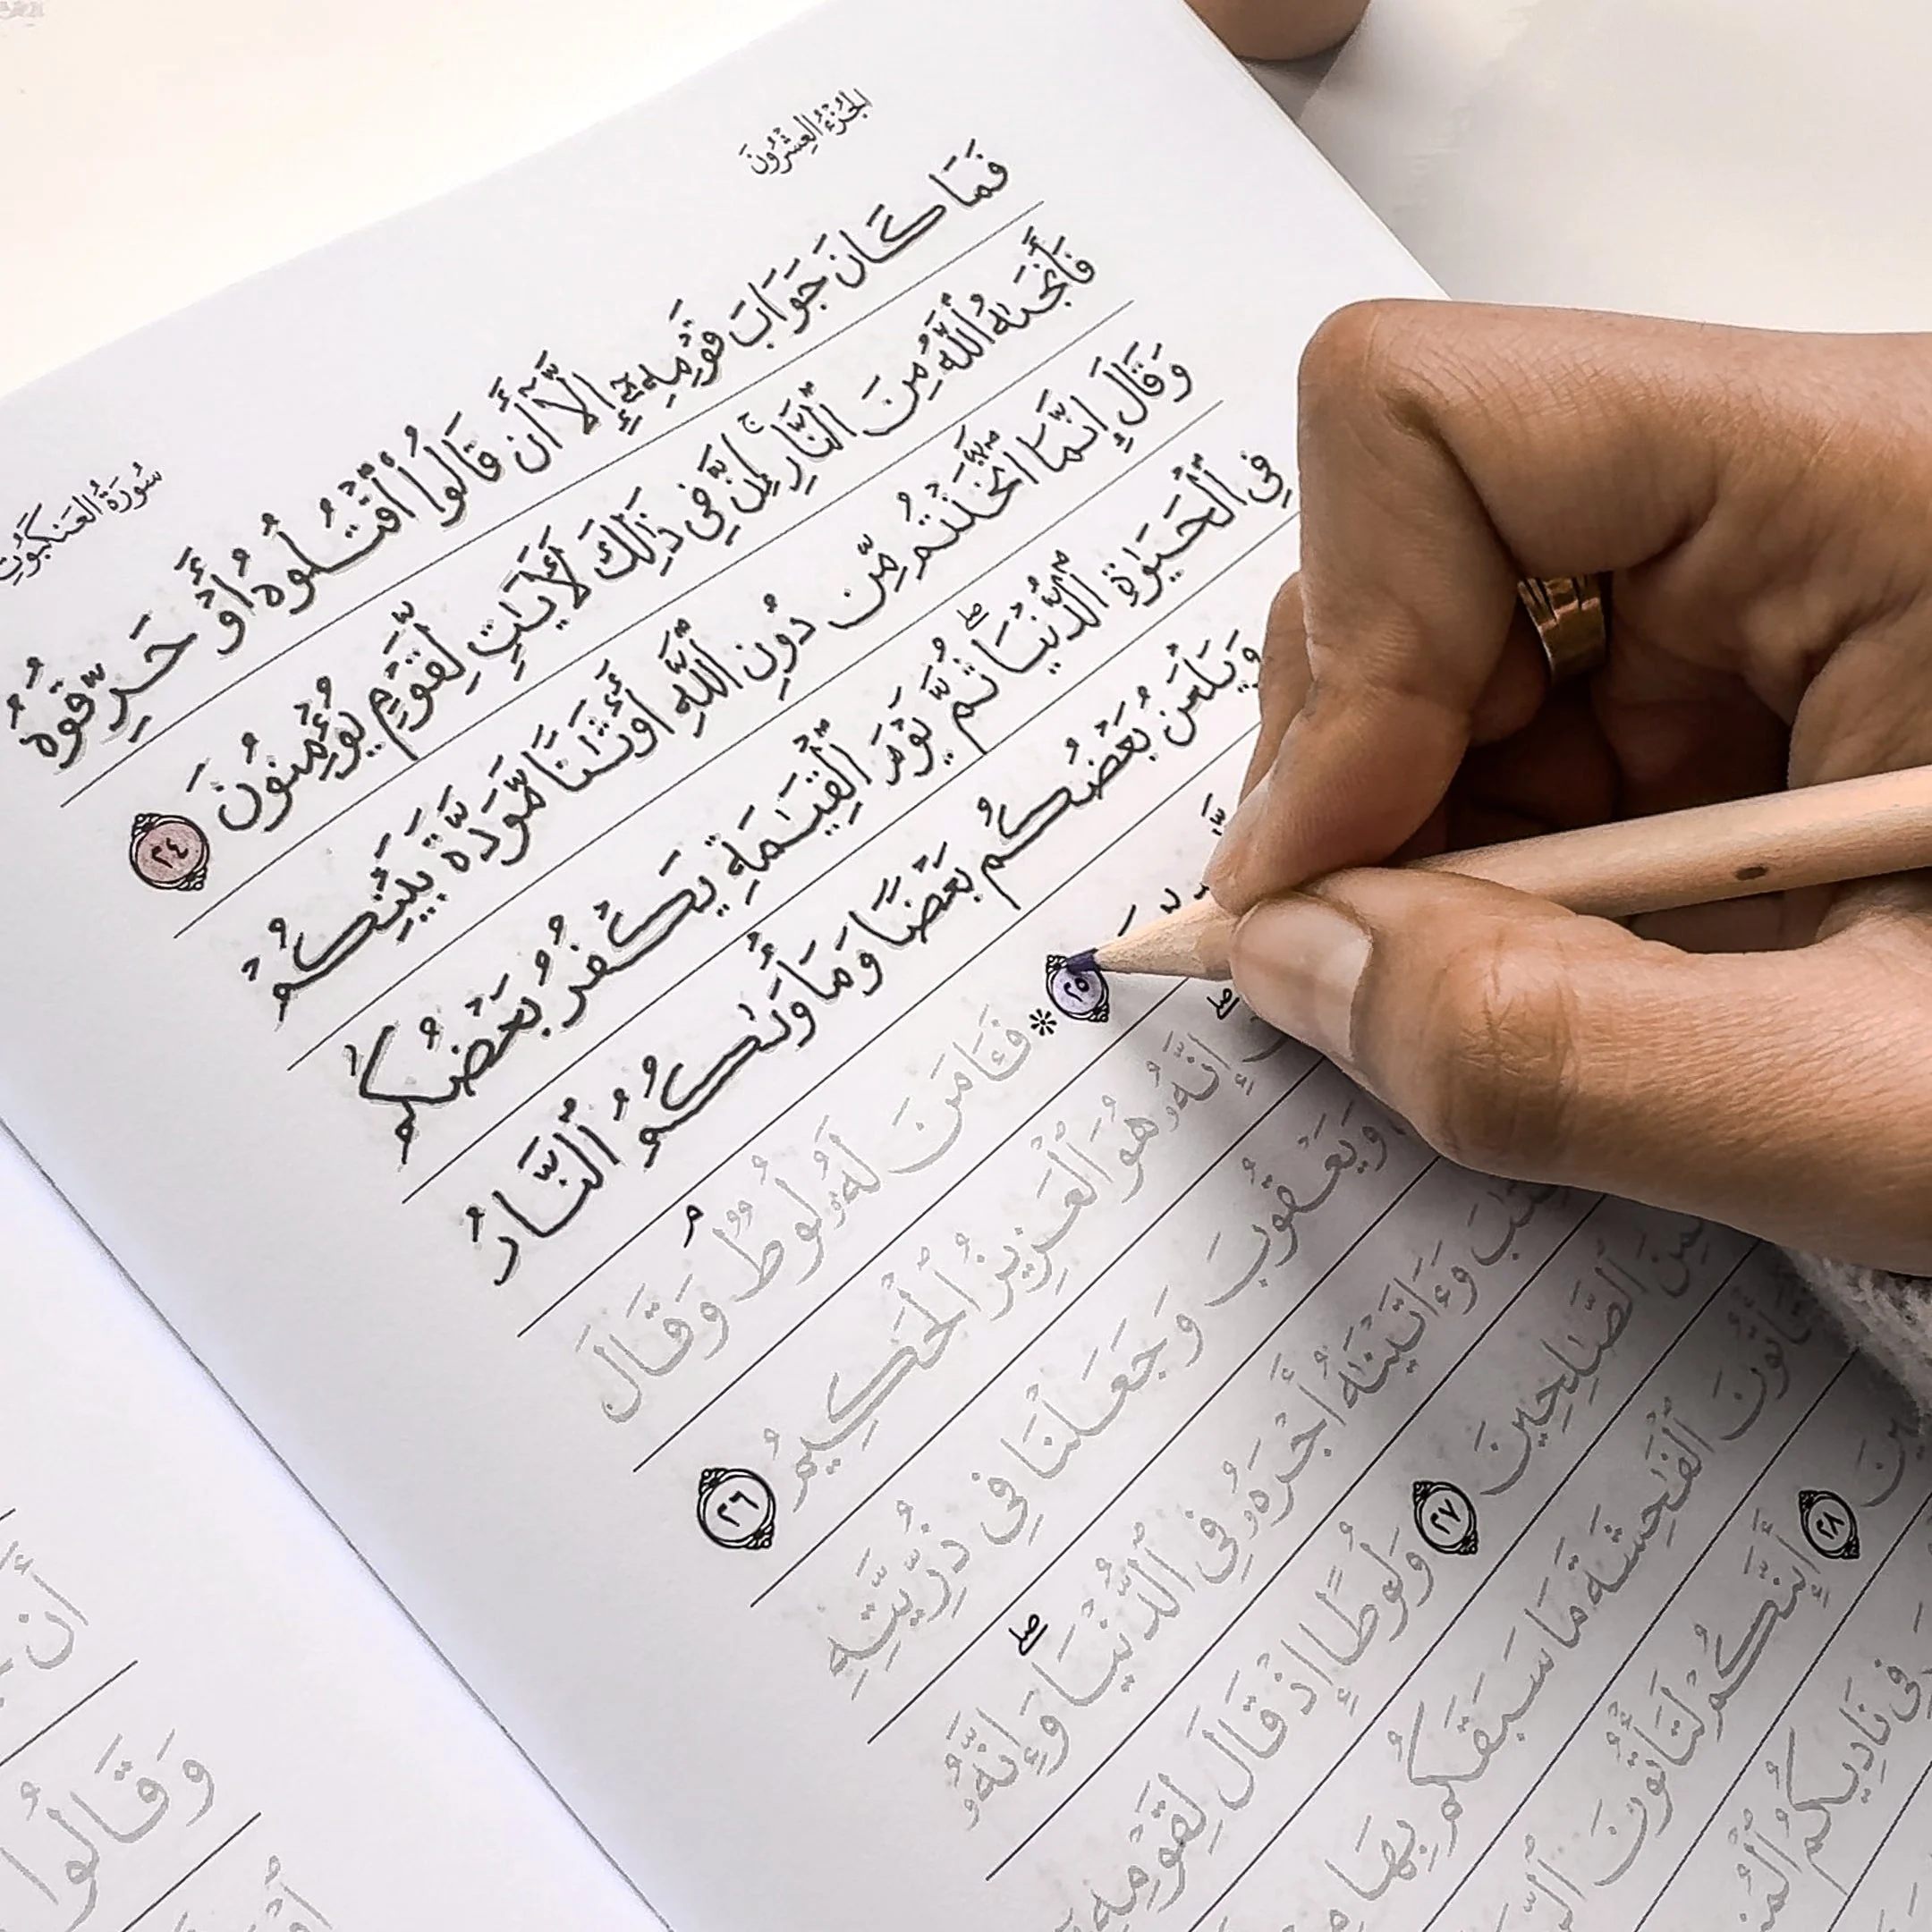 الجُزْءُ العِشْرُونَ
سُورَةُ العَنكَبُوتِ
فَمَا كَانَ جَوَابَ قَوْمِهِۦٓ إِلَّآ أَن قَالُوا۟ ٱقْتُلُوهُ أَوْ حَرِّقُوهُ
فَأَنجَىٰهُ ٱللَّهُ مِنَ ٱلنَّارِ ۚ إِنَّ فِى ذَٰلِكَ لَءَايَٰتٍ لِّقَوْمٍ يُؤْمِنُونَ ٢٤
وَقَالَ إِنَّمَا ٱتَّخَذْتُم مِّن دُونِ ٱللَّهِ أَوْثَٰنًا مَّوَدَّةَ بَيْنِكُمْ
فِى ٱلْحَيَوٰةِ ٱلدُّنْيَا ۖ ثُمَّ يَوْمَ ٱلْقِيَٰمَةِ يَكْفُرُ بَعْضُكُم
وَيَلْعَنُ بَعْضُكُم بَعْضًا وَمَأْوَىٰكُمُ ٱلنَّارُ
٢٥ * فَـَٔامَنَ لَهُۥ لُوطٌ وَقَالَ
إِنَّهُۥ هُوَ ٱلْعَزِيزُ ٱلْحَكِيمُ ٢٦
وَيَعْقُوبَ وَجَعَلْنَا فِى ذُرِّيَّتِهِ
وَءَاتَيْنَٰهُ أَجْرَهُۥ فِى ٱلدُّنْيَا ۖ وَإِنَّهُۥ
ٱلصَّٰلِحِينَ ٢٧ وَلُوطًا إِذْ قَالَ لِقَوْمِهِۦٓ
تَأْتُونَ ٱلْفَٰحِشَةَ مَا سَبَقَكُم بِهَا
٢٨ أَئِنَّكُمْ لَتَأْتُونَ
فِى نَادِيكُمُ
أَن
وَقَالُوا۟